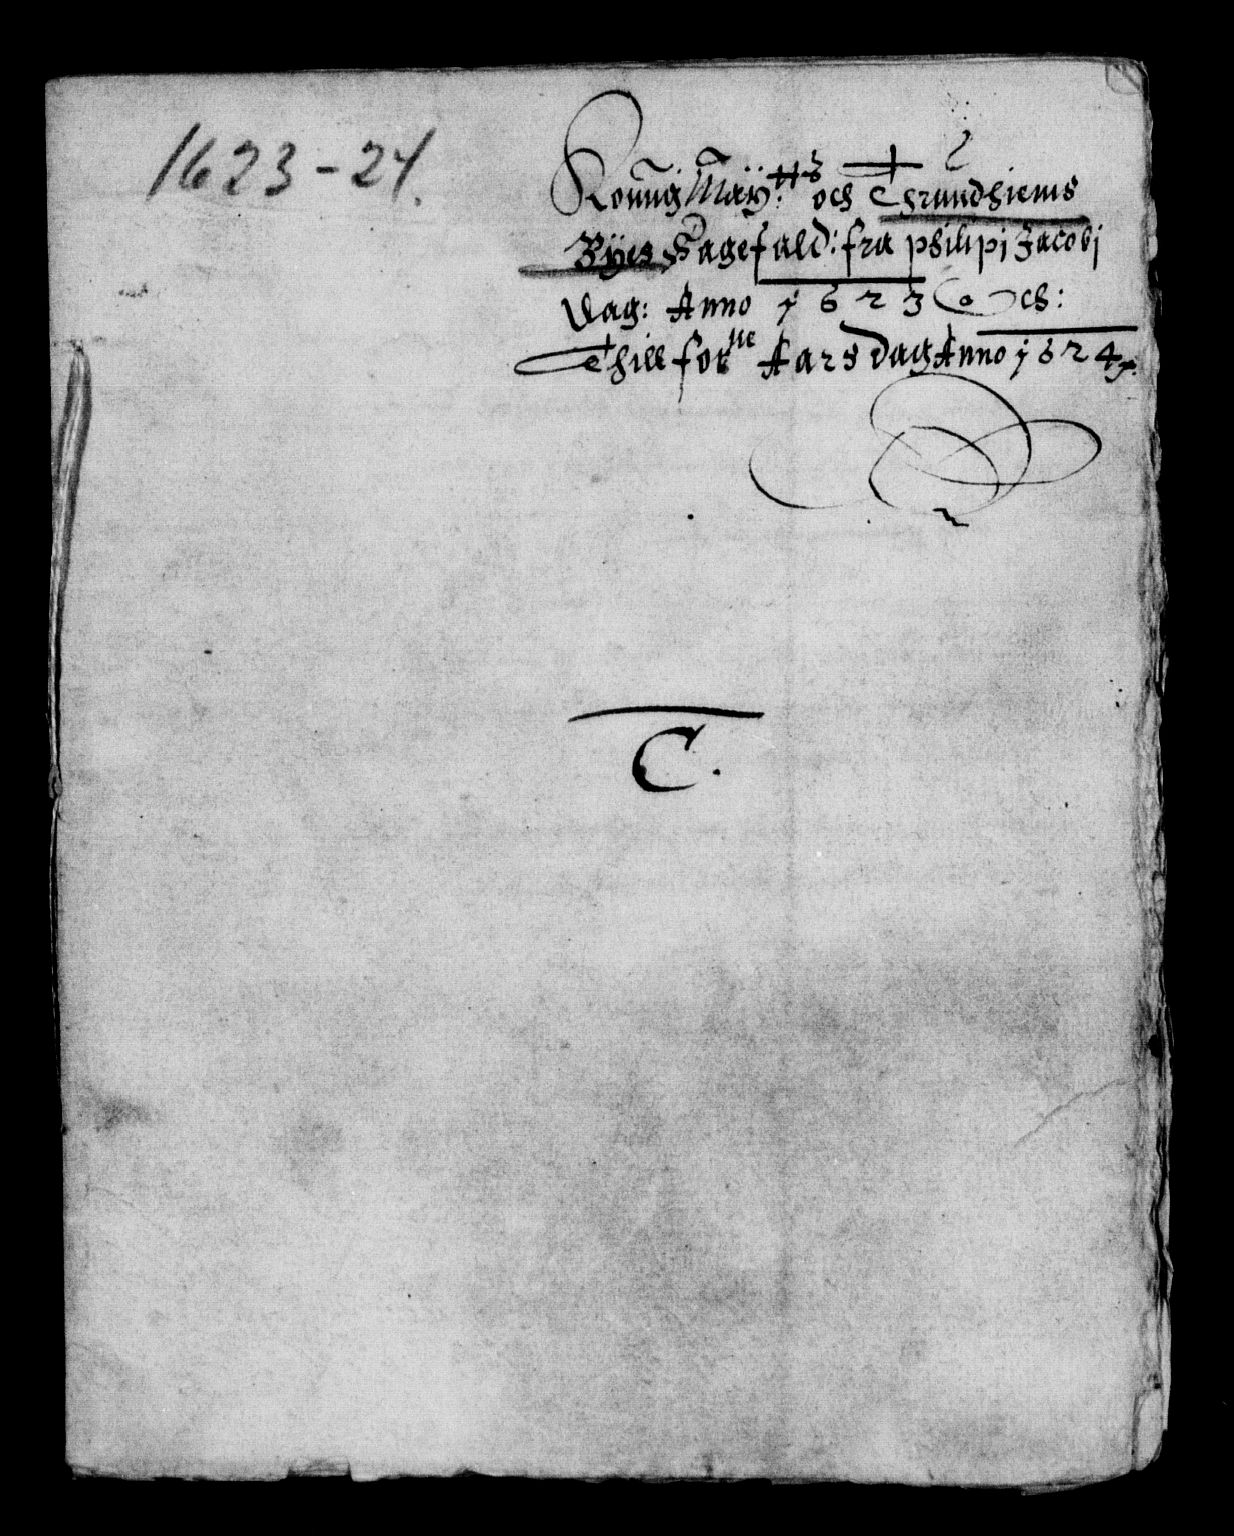 1623-24.
Konng Maÿ:tts och Thrundhiems
Bÿes Sagefald: fra philipi Jacobj
Dag: Anno 1623 Och:
Thill forne Aars dag Anno 1624
C.